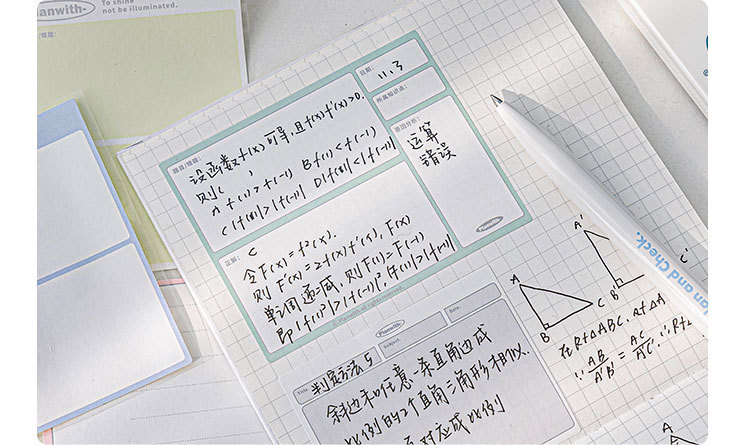 Planwith-
To shine
not be illuminated.
题目/错题:
设函数f(x)可导,且f(x)f'(x)>0.
则( )
A f(1)>f(-1) B f(1)<f(-1)
C |f(1)|>|f(-1)| D |f(1)|<|f(-1)|
日期:
11.3
所属知识点:
原因分析:
运算
错误
Planwith-
正解:
C
令F(x)=f²(x).
则F'(x)=2f(x)f'(x),F(x)
单调递减,则F(1)=F(-1)
© Planwith all rights reserved.
Planwith-
Title
判定方法5
Subject.
Date.
斜边和任意一条直角边成
比例的2个直角三角形相似.
对应成比例
A
B
C
A'
B'
C'
在Rt△ABC
∵ AB/A'B' = AC/A'C' ∴Rt
Plan and Check.
A
A